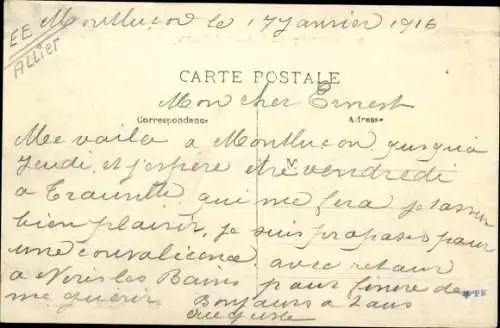 EE
ALLIER
Montluçon le 17 Janvier 1916
CARTE POSTALE
Mon cher Ernest
Correspondance
Adresse
Me voila a Montluçon jusqu'a
Jeudi et j'espère etre vendredi
a qui me fera je t'assure
bien plaisir, je suis proposé pour
une convalicence avec retour
a Néris les Bains pour finire de
me guérir Bonjours a tous
Auguste